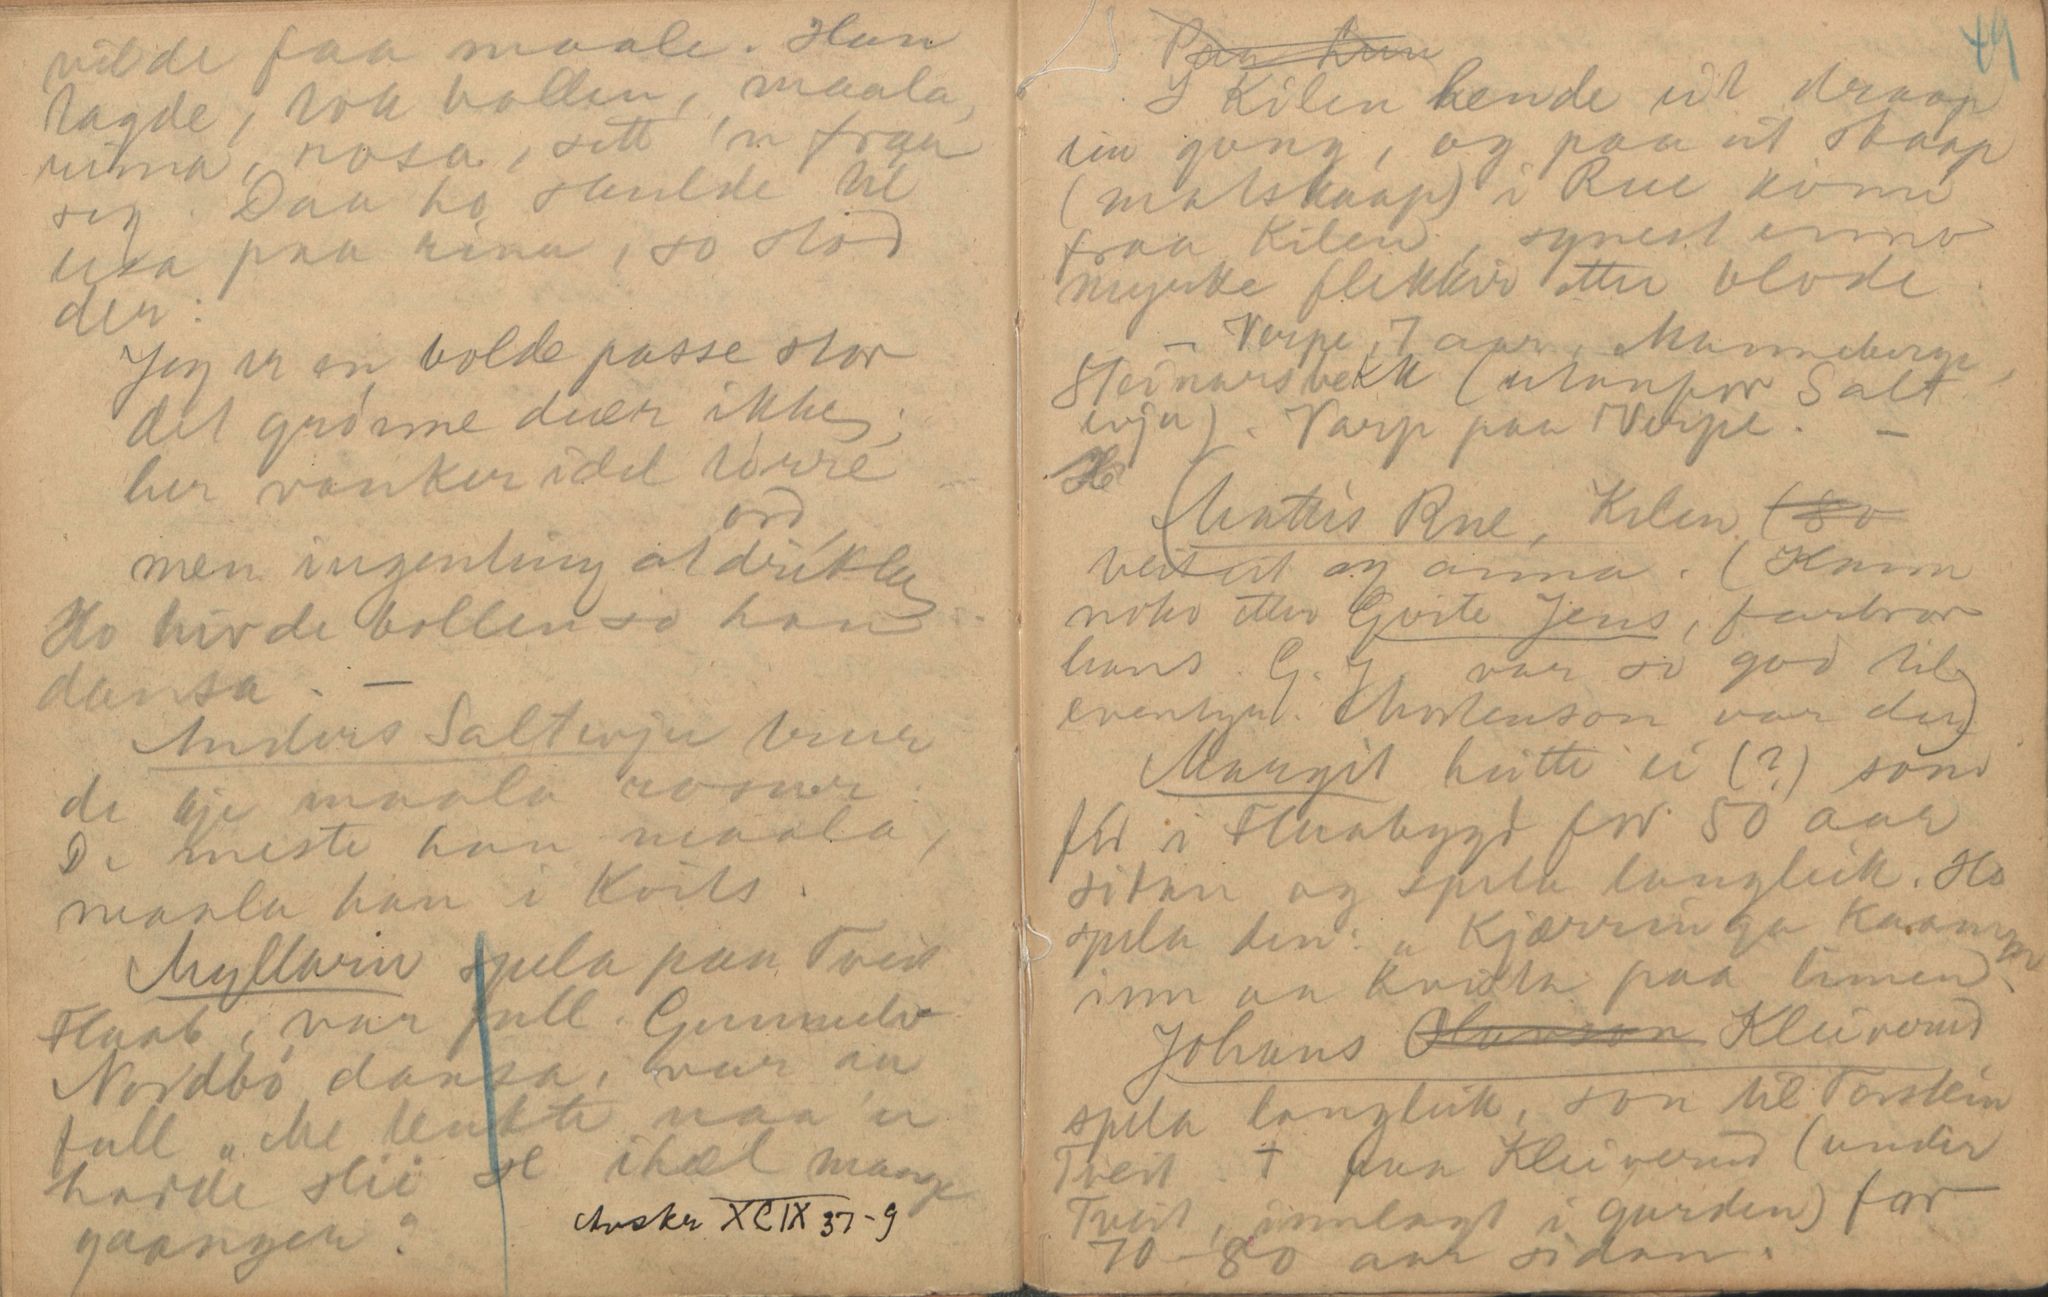 vilde faa maale. Han
tagde, tok bollen, maala,
rima, rosa, sett 'n fraa
seg. Daa ho skulde til
lesa paa rima, so stod
der:
Jeg er en bolde passe stor
det grómme duer ikke,
her vanker idel tørre
ord,
men ingenting at drikke
Ho hivde bollen so han
dansa. —
Anders Saltevju bruur
de kje maala rosur.
D. meste han maala,
maala han i Kvits.
Myllarin spela paa Tveit
Flaab, var full. Gunnulv
Nordbó dansa, var au
full „Me tenkte naa 'n
hadde slii se ihæl mange
gaanger?
Avskr XCIX 37-9
49
Paa hun
I Kilen hende eit draap
ein gong, og paa eit skaap
(matskaap) i Rue kome
fraa Kilen, synest enno
mykke flekkir etter blode.
– Verpe, 7 aar, Manneberge,
Steinarsbekk (utanfor Salt
evju). Varp paa Verpe. –
Ho
(Mattis Rue, Kilen (80
veit eit og anna. (Kann
noko etter Gvite Jens, farbror
hans. G. J. var so god til
eventyr. Mortenson var der)
Margit heitte ei (?) som
fór i Flaabygd for 50 aar
sidan og spela langleik. Ho
spela den: „Kjærringa kaam
inn aa kvidta paa limen
Johans Hanson Kleiverud
spela langleik, son til Torstein
Tveit. † paa Kleiverud (under
Tveit, innlagt i garden) for
70–80 aar sidan.